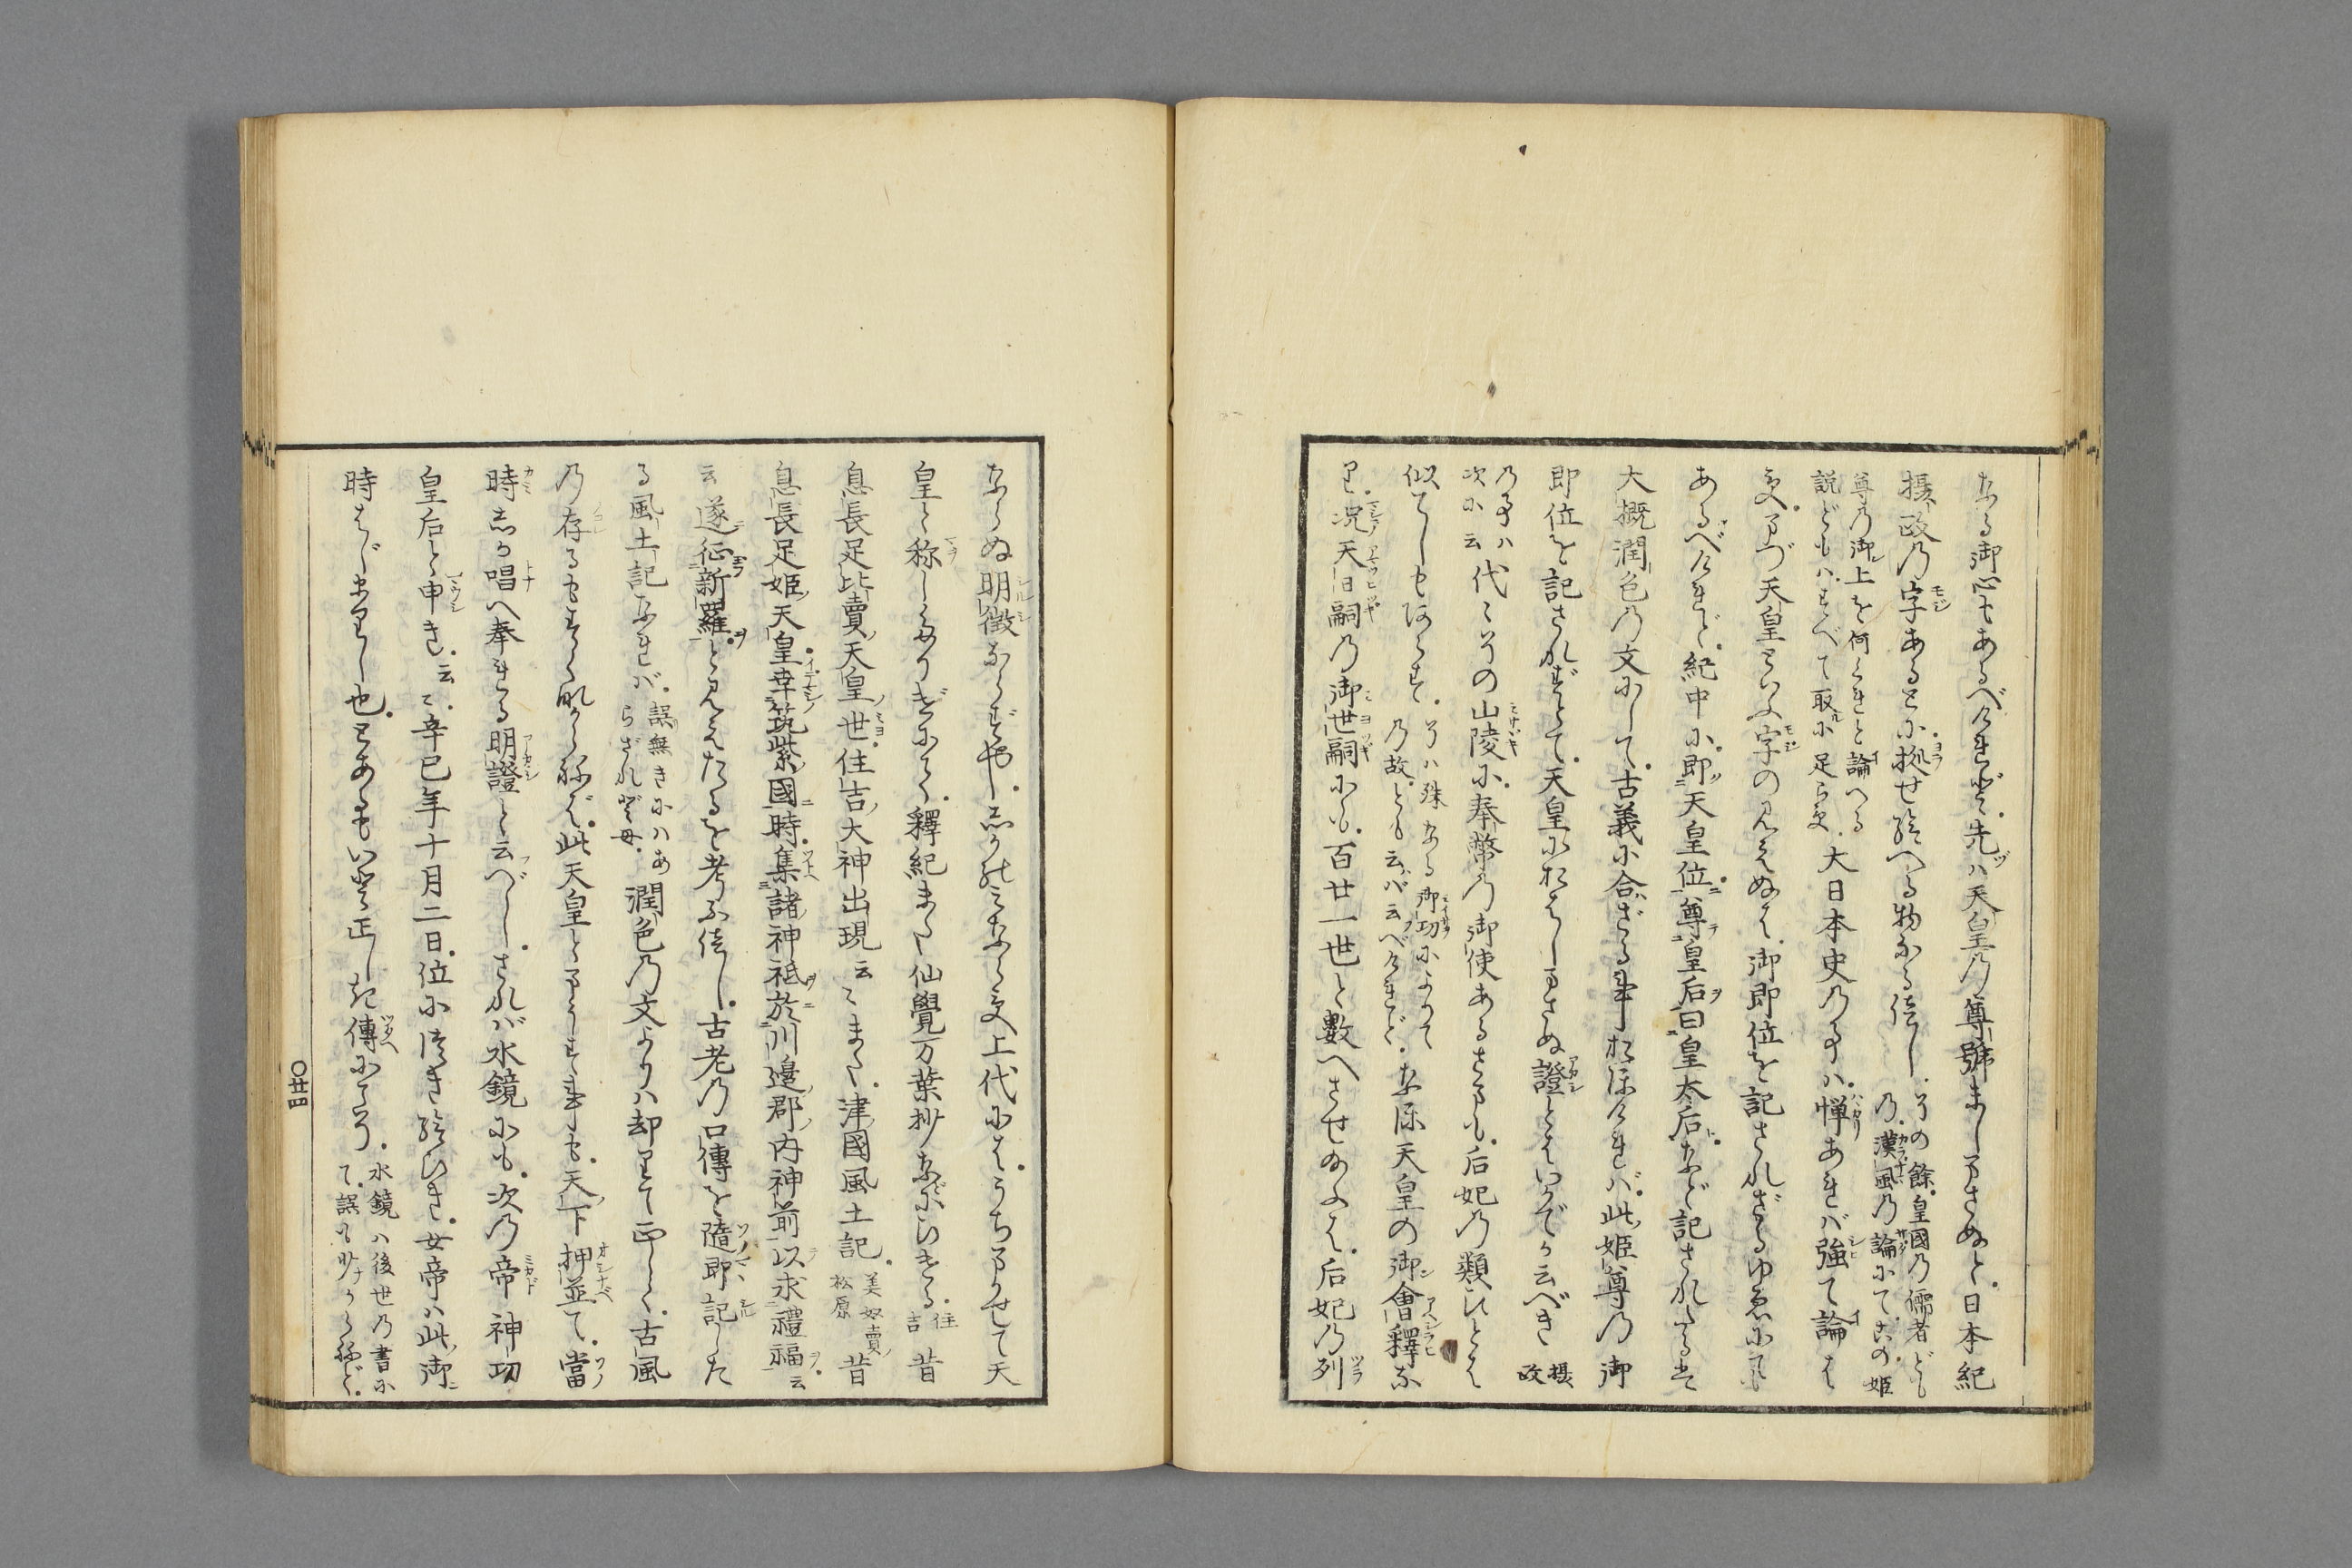 なる御心もあるべけれど。先ヅハ天皇乃尊號ましまさぬと。日本紀
攝政乃字あるとに。拠せ給へる物なる徒し。その餘。皇國乃儒者ども乃。漢風乃論にて。この姫
尊乃御上を何くれと論へる説どもハ。すべて取に足らず。大日本史乃事ハ。憚あれバ強て論はず
まづ天皇といふ字の見えぬは。御即位を記されざるゆゑにて
あるべけれど。紀中に。即天皇位。尊皇后曰皇太后など記されたるは
大概潤色乃文にして。古義に合ざる事おほければ。此姫尊乃御
即位を記されずとて。天皇におはしまさぬ證とはいかでか云べき 攝政
乃事ハ次に云 代々その山陵に。奉幣乃御使あるさまも。后妃乃類ひとは
似てしもあらず。そハ殊なる御功によりて乃故。とも云バ云べけれど。なほ天皇の御會釋な
り。况天日嗣乃御世嗣にも。百廿一世と數へさせ給ふは。后妃乃列
ならぬ明徴ならずや。しかのみならず上代には。うちまかせて天
皇と称しゝなりけにて。釋紀また仙覺万葉抄などに引ける。住吉 昔
息長足比賣天皇世。住吉大神出現云々また。津國風土記。美奴賣松原 昔
息長足姫天皇幸筑紫國時。集諸神祇於川邊郡内神前以求禮福。云
云遂征新羅。と見えたるを考ふ徒し。古老乃口傳を隨即記した
る風土記なれバ。誤無きにハあらざれども。潤色乃文よりハ却りて正しく。古風
乃存るもすくなからねば。此天皇とまうす事も。天下押並て。當
時しか唱へ奉れる明證と云べし。されバ水鏡にも。次乃帝神功
皇后と申き。云々。辛巳年十月二日。位に即き給ひき。女帝ハ此御
時はじまりし也。とあるもいと正しき傳にて。水鏡ハ後世乃書にて。誤も少なからねど。
〇廿四